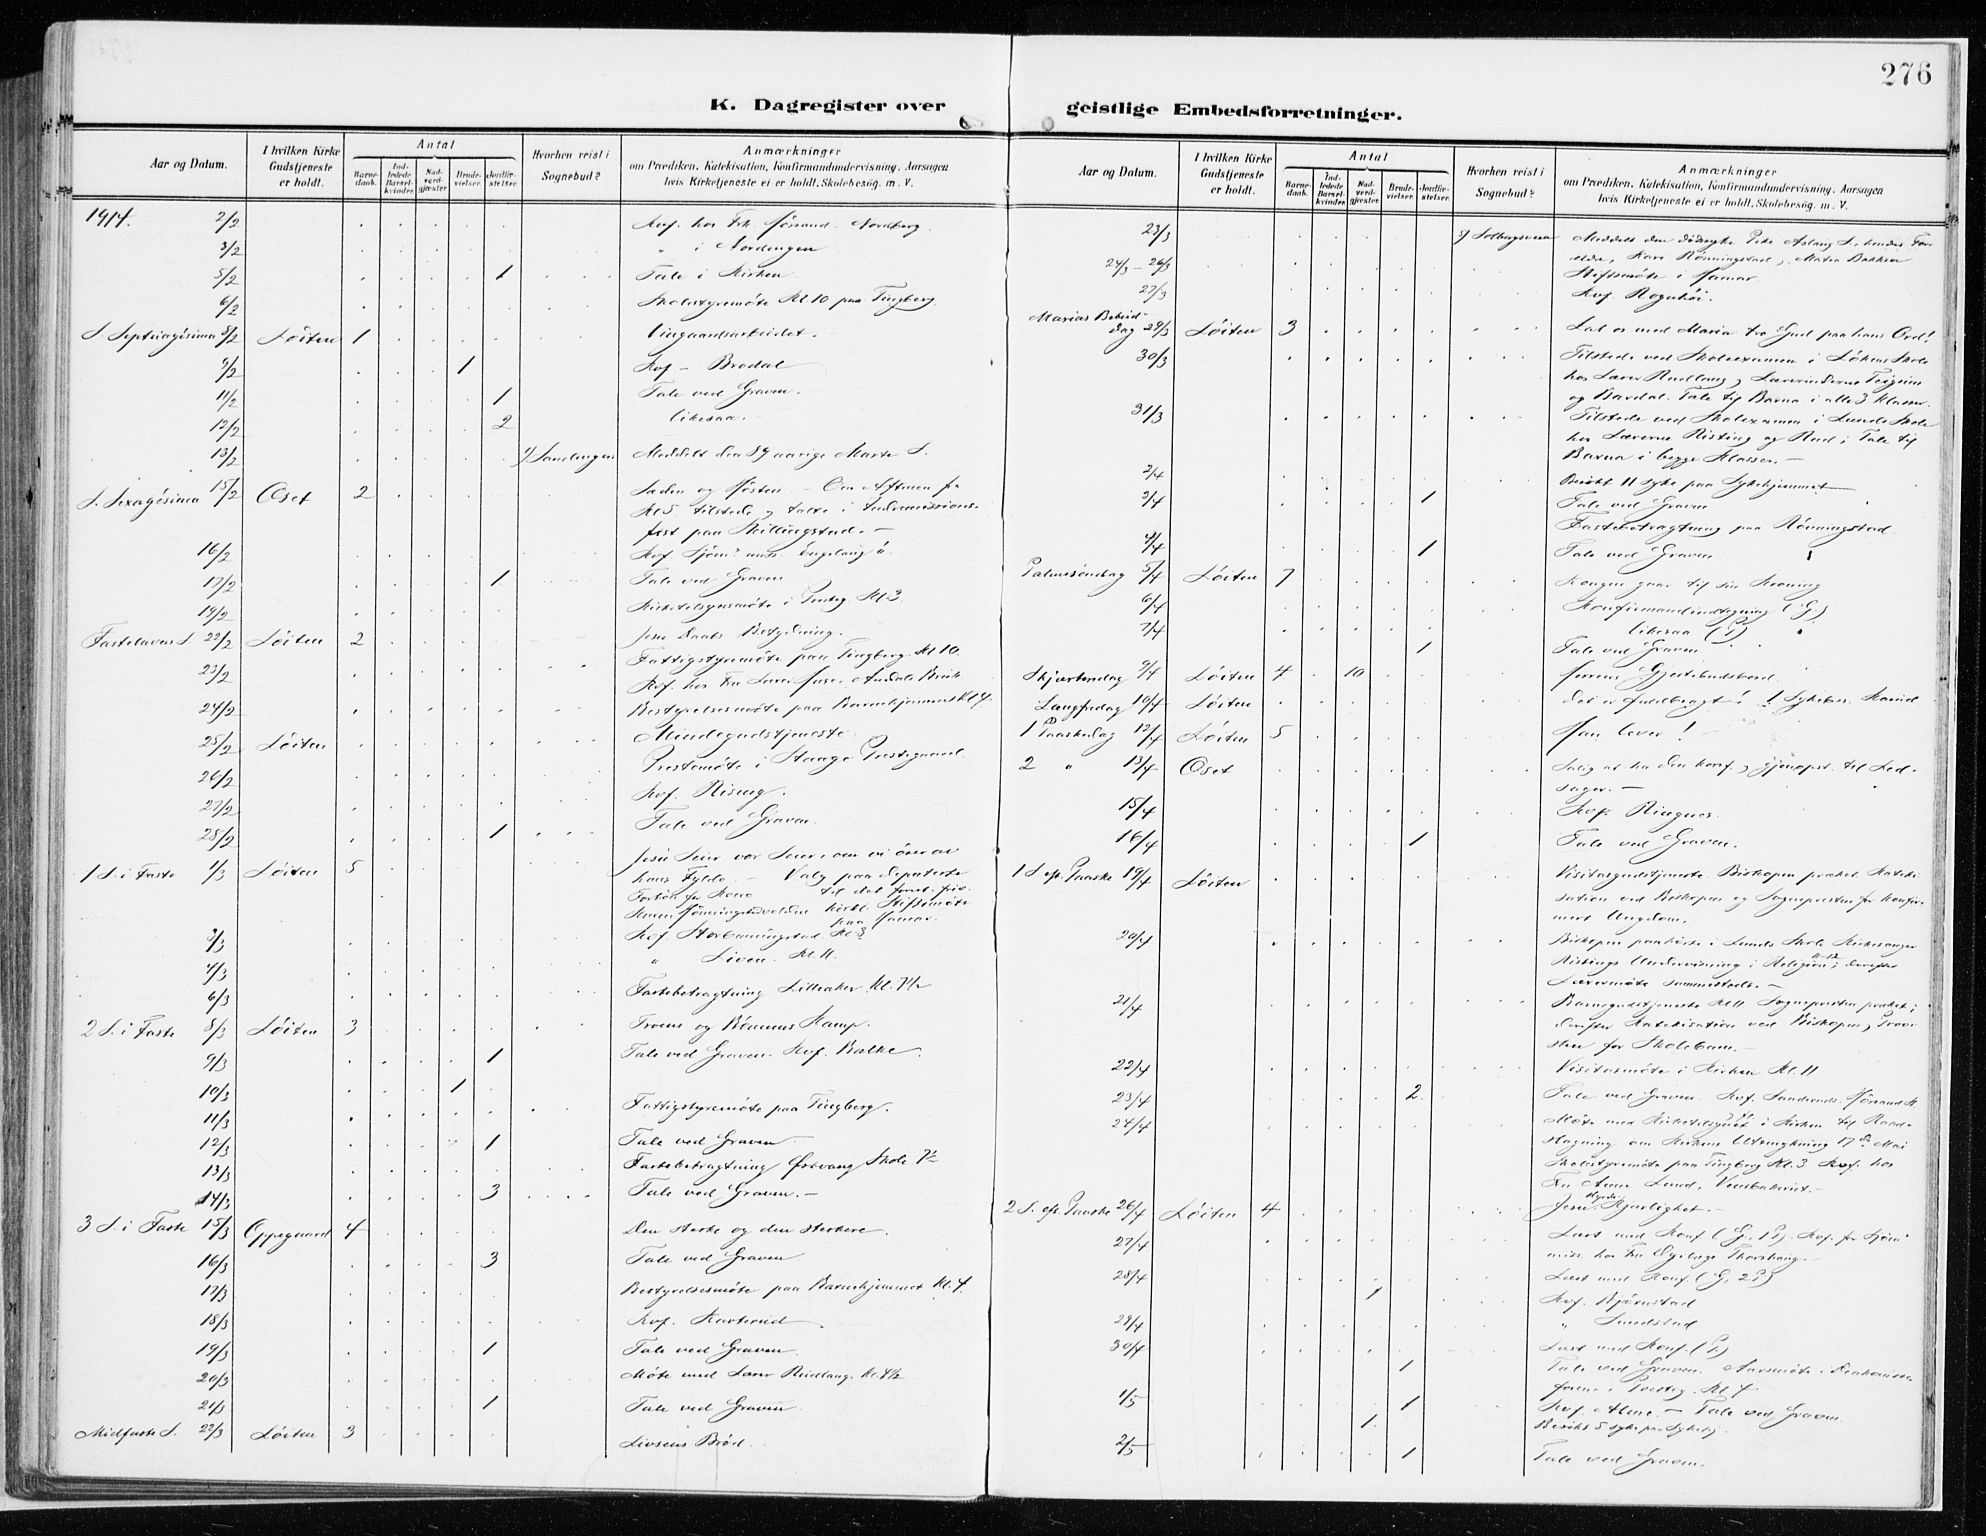 276
K. Dagregister over geistlige Embedsforretninger.
Aar og Datum. I hvilken Kirke Gudstjeneste er holdt. Antal Barnedaab. Indledede Barselkvinder. Nadverdgjæster. Brudevielser. Jordfæstelser. Hvorhen reist i Sognebud? Anmærkninger om Prædiken, Katekisation, Konfirmandundervisning, Aarsagen hvis Kirketjeneste ei er holdt, Skolebesøg. m. V.
1914. 2/2 Kof. hos Frk.
3/2 " i Nordengen
5/2 1 Tale i Kirken
6/2 Skolestyremöte Kl. 10 paa Tingberg.
S. Septuagesima 8/2 Löiten 1 Vingaardsarbeidet.
9/2 1 Kof – Brodal
11/2 1 Tale ved Graven.
12/2 2 likesaa. –
13/2 Meddelt den 89 aarige Marte S.
S. Sexagesima 15/2 Oset 2 Sæden og Hösten. – Om Aftenen fra
Kl 5 tilstede og talte i Indremissions-
fest paa Skillingstad. –
16/2 Kof.
17/2 1 Tale ved Graven
19/2 Kirketilsynsmöte i Prestg. Kl 3.
Fastelavns S. 22/2 Löiten 2 Jesu Daabs Betydning.
Fattigstyremöte paa Tingberg Kl 10.
23/2 Kof. hos Fru
24/2 Bestyrelsesmöte paa Barnehjemmet Kl 4.
25/2 Löiten Mindegudstjeneste.
26/2 Prestemöte i Stange Prestegaard.
27/2 Kof. Rising.
28/2 1 Tale ved Graven.
1 S. i Faste 1/3 Löiten 5 Jesu Seier vor Seier, om vi öser av
hans Fylde. – Valg paa Deputerte
til det
Stiftsmöte
paa Hamar.
3/3 Kof. Kl. 3
4/3 " Liven. Kl. 11.
6/3 Fastebetragtning Lilleaker Kl. 7½
2 S. i Faste 8/3 Löiten 3 Troens og Bönnens Kamp.
9/3 1 Tale ved Graven. Kof. Balke.
10/3 1
11/3 Fattigstyremöte paa Tingberg.
12/3 1 Tale ved Graven –
13/3 Fastebetragtning Östvang Skole 7½
14/3 3 Tale ved Graven. –
3 S. i Faste 15/3 Oppegaard 4 Den sterke og den sterkere.
16/3 3 Tale ved Graven
17/3 Bestyrelsesmöte paa Barnehjemmet Kl. 4.
18/3 Kof.
19/3 1 Tale ved Graven.
20/3 Möte med Lærer Rudlang. Kl. 4½
21/3 1 Tale ved Graven
Midfaste S. 22/3 Löiten 3 Livsens Bröd.
Aar og Datum. I hvilken Kirke Gudstjeneste er holdt. Antal Barnedaab. Indledede Barselkvinder. Nadverdgjæster. Brudevielser. Jordfæstelser. Hvorhen reist i Sognebud? Anmærkninger om Prædiken, Katekisation, Konfirmandundervisning, Aarsagen hvis Kirketjeneste ei er holdt, Skolebesøg. m. V.
23/3 Meddelt den dödssyke Pike Aslaug S., hendes For-
ældre, Kari Rönningstad, Matea Bakken
24/3 – 26/3 Stiftsmöte i Hamar.
27/3 Kof. Rognhöi.
Marias Bebud-
dag 29/3 Löiten 3 Lat os med Maria tro Gud paa hans Ord!
30/3 Tilstede ved Skoleexamen i Lökens Skole
hos Lærer Rudlang, Lærerinderne
og Bardal. Tale til Barna i alle 3 Klasser.
31/3 Tilstede ved Skolexamen i Lunds Skole
hos Lærerne Risting og Rød; Tale til
Barna i begge Klasser. –
2/4 Besökt 11 syke paa Sykehjemmet –
3/4 1 Tale ved Graven
Fastebetragtning paa Rönningstad.
4/4 1 Tale ved Graven
Palmesöndag 5/4 Löiten 7 Kongen gaar til sin Kroning
6/4 Konfirmandindtegning (G)
7/4 likesaa (P)
1 Tale ved Graven
Skjærtorsdag 9/4 Löiten 4 10 Herrens Gjestebudsbord.
Langfredag 10/4 Löiten Det er fuldbragt!
1 Paaskedag 12/4 Löiten 5 Han lever!
2 " 13/4 Oset Salig at ha den til Led-
sager. –
15/4 Kof. Ringnes.
16/4 1 Tale ved Graven.
1 S. ef. Paaske 19/4 Löiten Visitasgudstjeneste. Biskopen præket. Kateki-
sation ved Biskopen og Sognepresten for konfir-
mert Ungdom.
20/4 Biskopen paahörte i Lunds Skole Kirkesanger
Ristings Undervisning i Religion; derefter
Lærermöte sammesteds. –
21/4 Barnegudstjeneste Kl 11 Sognepresten præket;
derefter Katekisation ved Biskopen, Prov-
sten for Skolebarn. –
22/4 Visitasmöte i Kirken Kl. 11
23/4 2 Tale ved Graven. Kof.
24/4 Möte med Kirketilsynet i Kirken til Raad-
slagning om Kirkens Utsmykning 17de Mai
Skolestyremöte paa Tingberg Kl. 3. Kof. hos
Fru Anne Lund,
2 S. ef. Paaske 26/4 Löiten 4 Jesu Kjærlighet. –
27/4 Læst med Konf. (G, P). Kof. for Sjöm-
miss. hos Fru
28/4 Læst med Konf. (G, 2P)
1 Kof. Björnstad
29/4 " Sundstad
30/4 Læst med Konf. (P)
1 Tale ved Graven. Aarsmöte i
foren. i Presteg. Kl 4
1/5 1 Kof. Alme. – Tale ved Graven
1 Besökt 5 syke paa Sykehj.
2/5 1 Tale ved Graven.